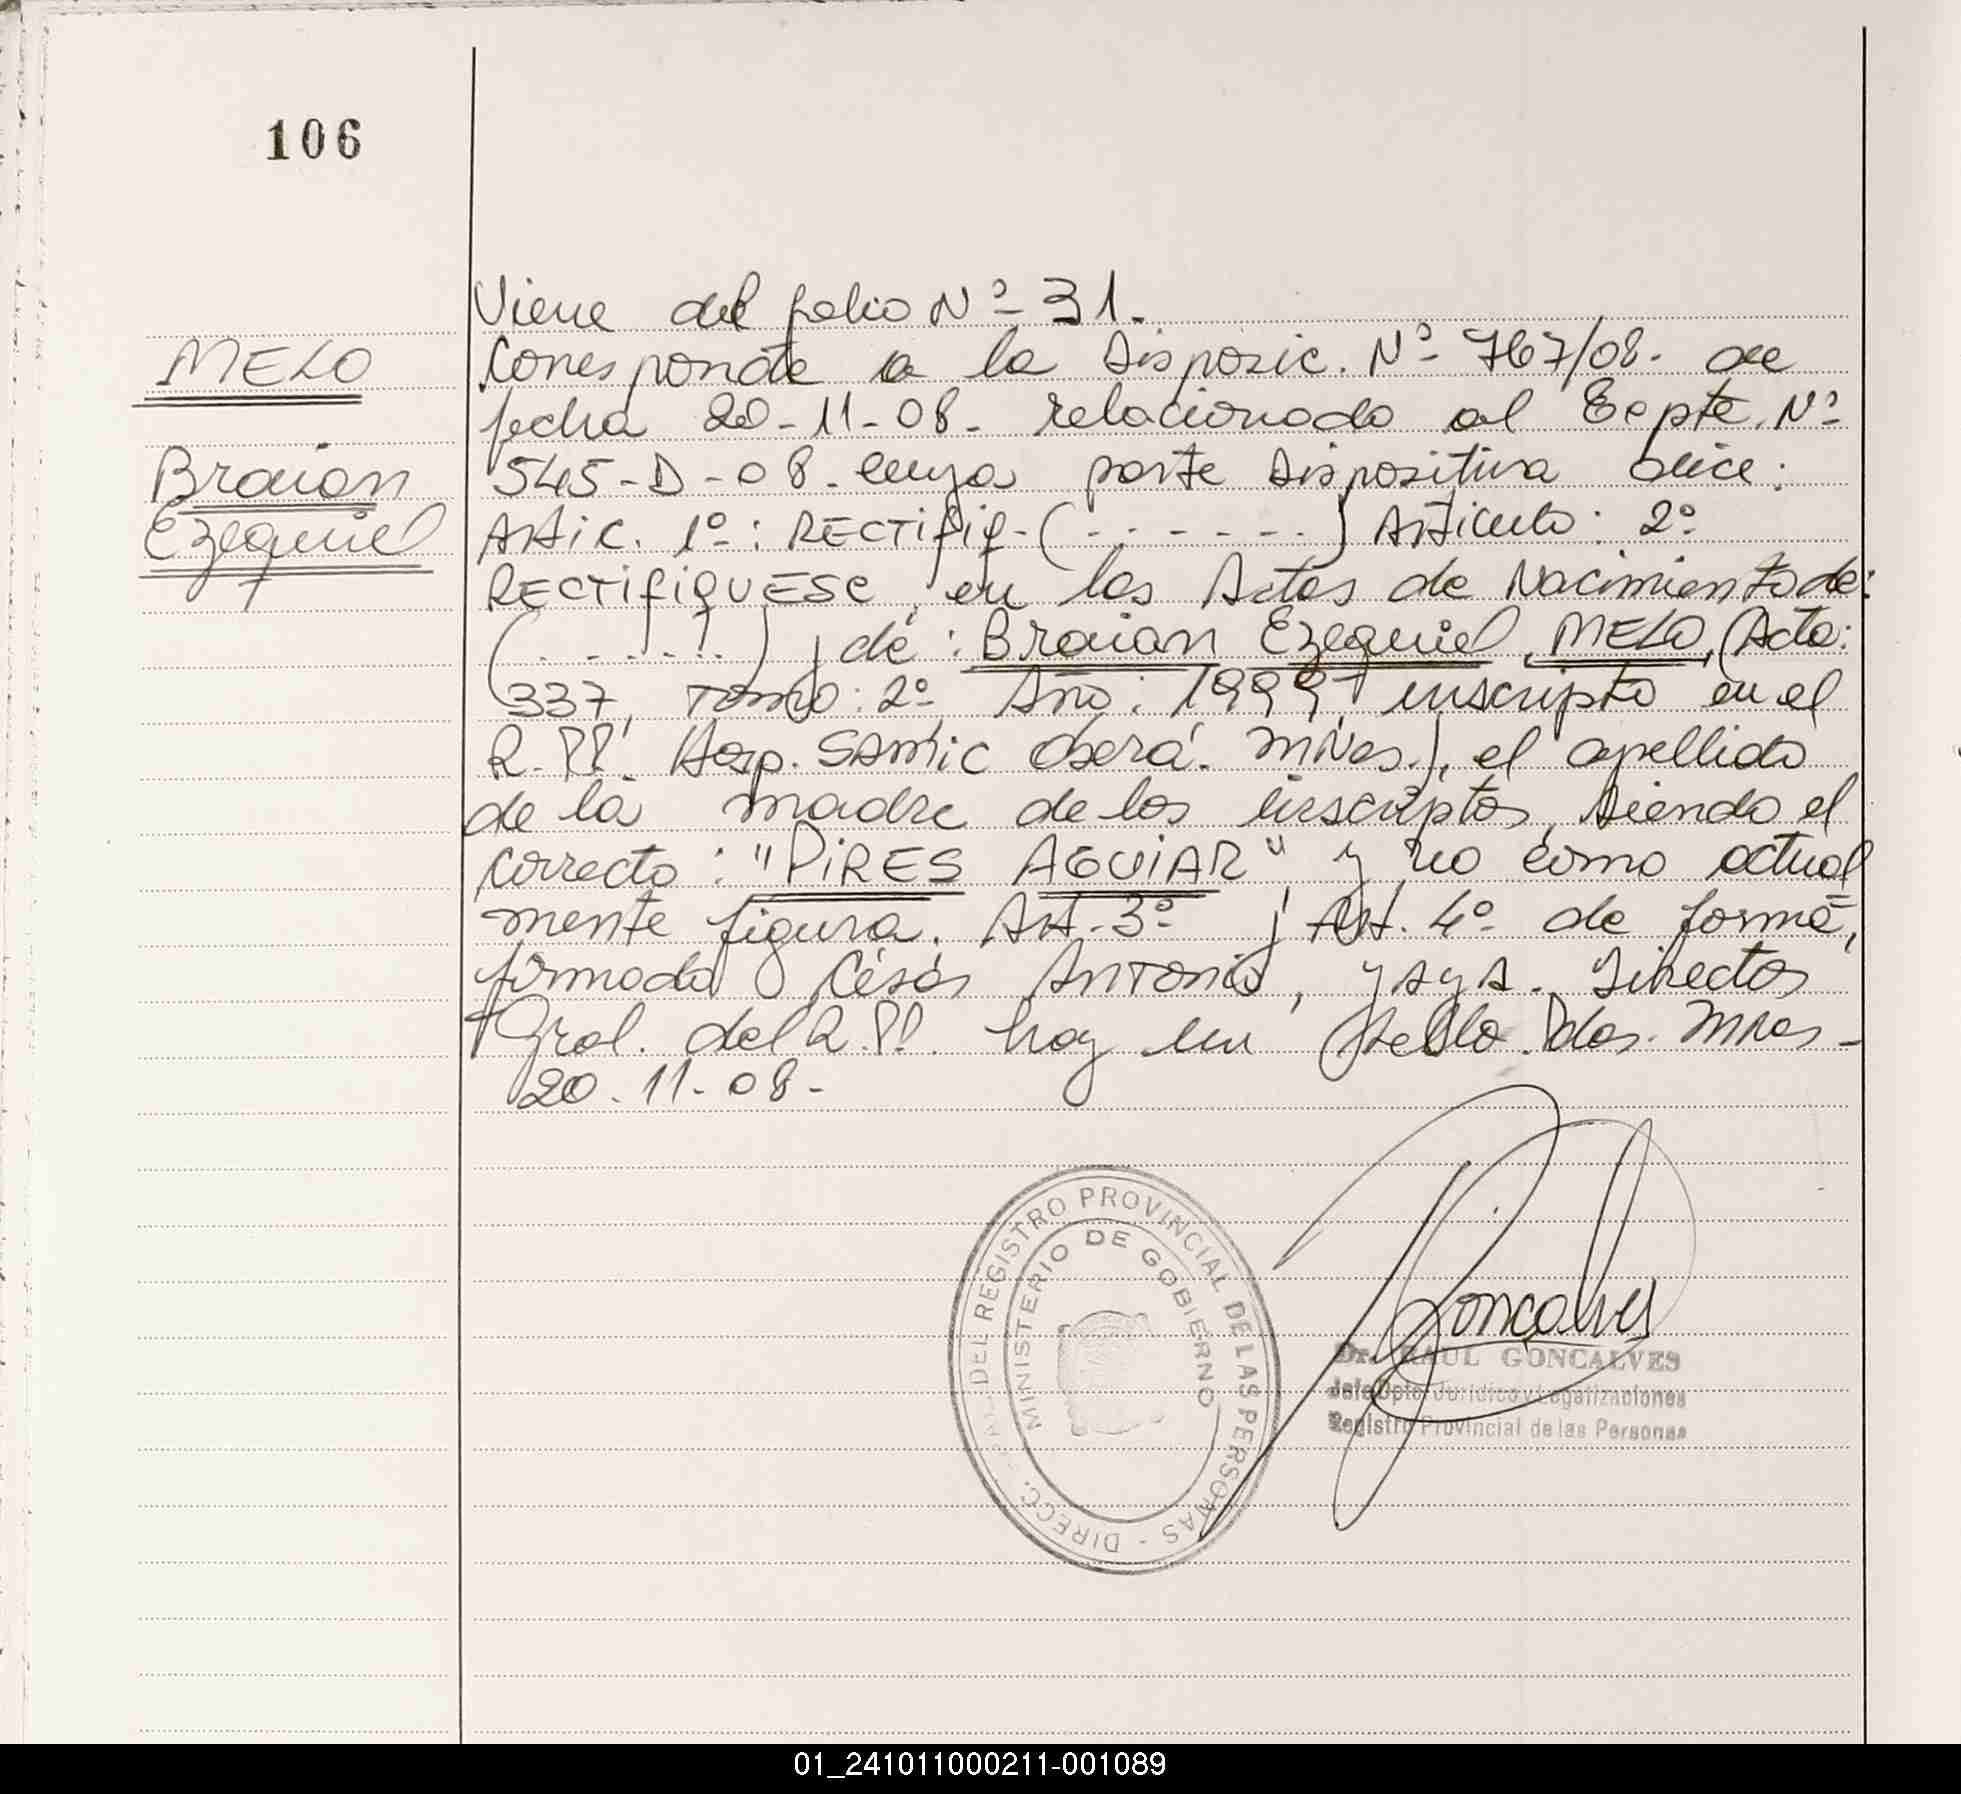 106
Viene del folio Nº 31.
MELO
Corresponde a la Disposic. Nº 767/08. de
fecha 20-11-08. relacionado al Expte. Nº
Braian
545-D-08. cuya parte Dispositiva dice:
Ezequiel
Artic. 1º: RECTIFIQ-(. . . . . .) Articulo: 2º
RECTIFIQUESE, en las Actas de Nacimiento de:
(. . . . . .) y de: Braian Ezequiel, MELO, (Acta:
337, Tomo: 2º Año: 1999, inscripto en el
R.PP. Hosp. SAMIC Oberá. MNes.), el apellido
de la madre de los inscriptos, siendo el
correcto: "PIRES AGUIAR", y no como actual
mente figura. Art. 3º y Art. 4º de forma,
firmado César Antonio, Director
Gral. del R.PP. hoy en Pdas. Mnes-
20.11.08.-
DIRECC. GRAL. DEL REGISTRO PROVINCIAL DE LAS PERSONAS -
MINISTERIO DE GOBIERNO
Goncalves
Dr. RAUL GONCALVES
Jefe Dpto. Juridico y Legalizaciones
Registro Provincial de las Personas
01_241011000211-001089